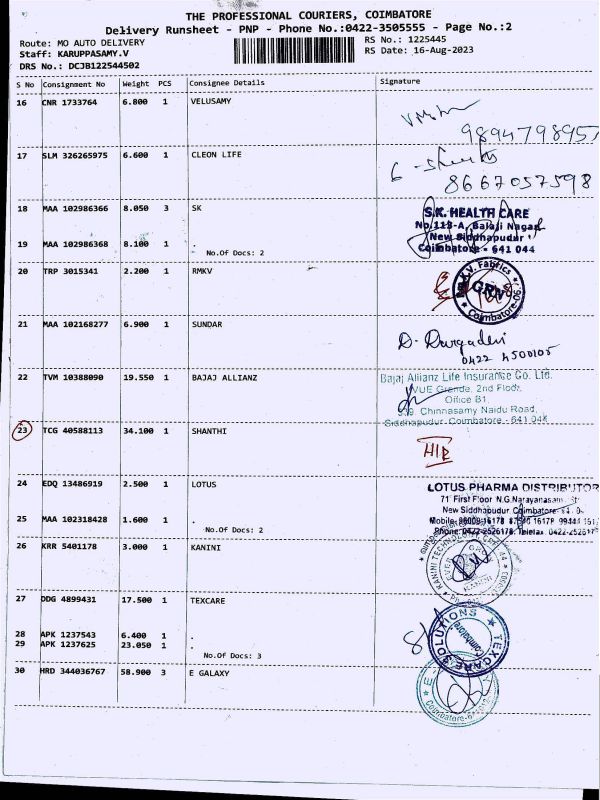 THE PROFESSIONAL COURIERS, COIMBATORE
Delivery Runsheet - PNP - Phone No.:0422-3505555 - Page No.:2
Route: MO AUTO DELIVERY
Staff: KARUPPASAMY.V
DRS No.: DCJB122544502
RS No.: 1225445
RS Date: 16-Aug-2023
S No Consignment No Weight PCS Consignee Details Signature
16 CNR 1733764 6.800 1 VELUSAMY
9894798957
17 SLM 326265975 6.600 1 CLEON LIFE
8667057598
18 MAA 102986366 8.050 3 SK
S.K. HEALTH CARE
No.113-A, Balaji Nagar
New Siddhapudur
Coimbatore - 641 044
19 MAA 102986368 8.100 1 .
No.Of Docs: 2
20 TRP 3015341 2.200 1 RMKV
Fabrics
GRN
Coimbatore
21 MAA 102168277 6.900 1 SUNDAR
D. Durgadevi
0422 4500105
22 TVM 10388090 19.550 1 BAJAJ ALLIANZ
Bajaj Allianz Life Insurance Co. Ltd.
VUE Grande, 2nd Floor,
Office B1,
Chinnasamy Naidu Road,
Siddhapudur Coimbatore - 641 044
23 TCG 40588113 34.100 1 SHANTHI
24 EDQ 13486919 2.500 1 LOTUS
LOTUS PHARMA DISTRIBUTOR
71 First Floor N.G.Narayanasam
New Siddhapudur Coimbatore
25 MAA 102318428 1.600 1 .
No.Of Docs: 2
Phone: 0422-2526178, Telefax: 0422-252617
26 KRR 5401178 3.000 1 KANINI
KANINI
27 DDG 4899431 17.500 1 TEXCARE
TEXCARE SOLUTIONS
Coimbatore
28 APK 1237543 6.400 1 .
29 APK 1237625 23.050 1 .
No.Of Docs: 3
30 HRD 344036767 58.900 3 E GALAXY
Coimbatore